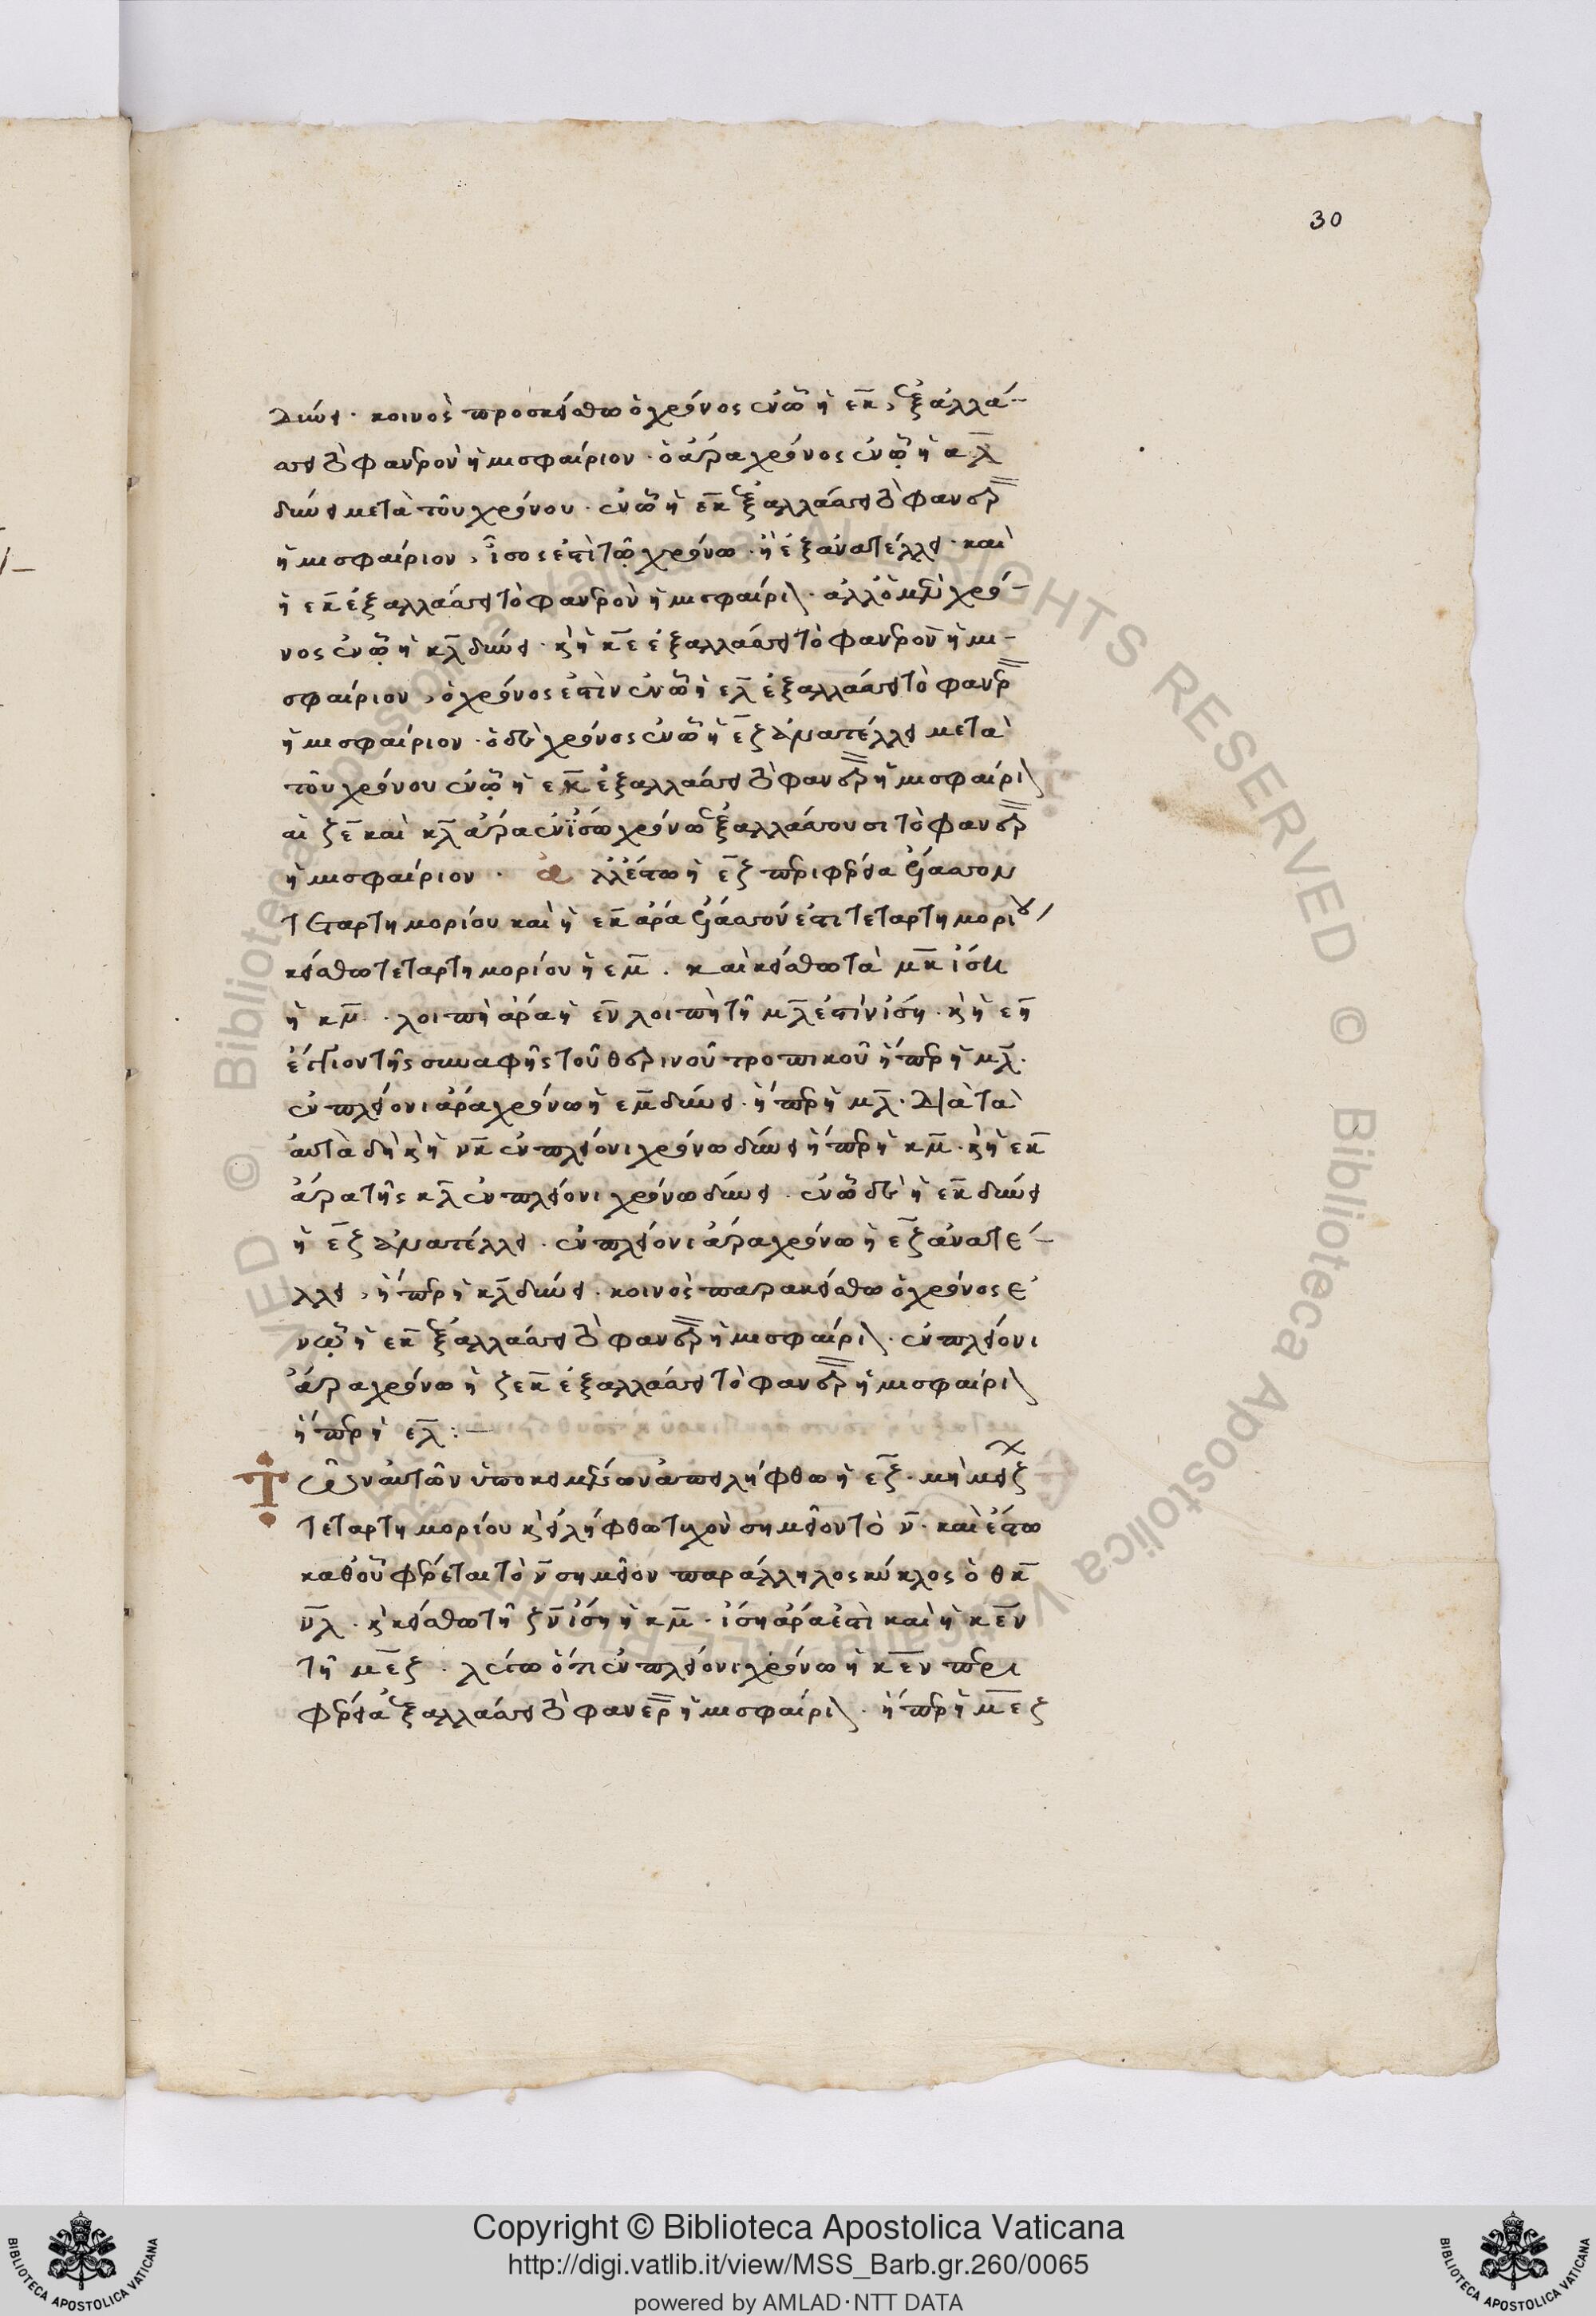 30
δύνει · κοινὸς προσκείσθω ὁ χρόνος ἐν ᾧ ἡ εκ, ἐξαλλά-
σσει τὸ φανερὸν ἡμισφαίριον · ὁ ἄρα χρόνος ἐν ᾧ ἡ κλ
δύνει μετὰ τοῦ χρόνου · ἐν ᾧ ἡ εκ ἐξαλλάσσει τὸ φανερ
ἡμισφαίριον, ἴσος ἐστὶ τῷ χρόνω · ἡ εξ ἀνατέλλει · καὶ
ἡ εκ ἐξαλλάσσει τὸ φανερὸν ἡμισφαίρι · ἀλλ ὁ μὲν χρό-
νος ἐν ᾧ ἡ κλ δύνει · κ ἡ κε ἐξαλλάσσει τὸ φανερὸν ἡμι-
σφαίριον, ὁ χρόνος ἐστὶν ἐν ᾧ ἡ ελ ἐξαλλάσσει τὸ φανερ
ἡμισφαίριον · ὁ δὲ χρόνος ἐν ᾧ ἡ εζ ἀνατέλλει μετὰ
τοῦ χρόνου ἐν ᾧ ἡ εκ ἐξαλλάσσει τὸ φανερ ἡμισφαίρι
αἱ ζε καὶ κλ ἄρα ἐν ἴσω χρόνω ἐξαλλάσσουσι τὸ φανερ
ἡμισφαίριον · ἀλλ ἔστω ἡ εζ περιφέρεια ἐλάσσον
τεταρτημορίου καὶ ἡ εκ ἄρα ἐλάσσον ἐστι τεταρτημορίου
κείσθω τεταρτημορίου ἡ εμ · καὶ κείσθω τὰ μκ ἴση
ἡ κμ · λοιπὴ ἄρα ἡ εν λοιπῇ τῇ μλ ἐστὶν ἴση · κ ἡ εν
ἔγγιον τῆς συναφῆς τοῦ θερινοῦ τροπικοῦ ἤπερ ἡ μλ ·
ἐν πλείονι ἄρα χρόνω ἡ εμ δύνει · ἤπερ ἡ μλ · Διὰ τὰ
αὐτὰ δὴ κ ἡ νκ ἐν πλείονι χρόνω δύνει ἤπερ ἡ κμ · κ ἡ εκ
ἄρα τῆς κλ ἐν πλείονι χρόνω δύνει · ἐν ᾧ δὲ ἡ εκ δύνει
ἡ εζ ἀνατέλλει · ἐν πλείονι ἄρα χρόνω ἡ εζ ἀνατέ-
λλει, ἤπερ ἡ κλ δύνει · κοινὸς παρακείσθω ὁ χρόνος ἐ
ν ᾧ ἡ εκ ἐξαλλάσσει τὸ φανερ ἡμισφαίρι · ἐν πλείονι
ἄρα χρόνω ἡ ζεκ ἐξαλλάσσει τὸ φανερ ἡμισφαίρι
ἤπερ ἡ ελ :-
Τῶν αὐτῶν ὑποκειμένων ἀπειλήφθω ἡ εζ · μὴ μείζ
τεταρτημορίου κ εἰλήφθω τυχὸν σημεῖον τὸ ν · καὶ ἔστω
καθ οὗ φέρεται τὸ ν σημεῖον παράλληλος κύκλος ὁ θκ
νλ · κ κείσθω τῇ ζν ἴση ἡ κμ · ἴση ἄρα ἐστὶ καὶ ἡ κεν
τῇ μεζ · λέγω ὅτι ἐν πλείονι χρόνω ἡ κεν περι
φέρεια ἐξαλλάσσει τὸ φανερ ἡμισφαίρι · ἤπερ ἡ μεζ
ALL RIGHTS RESERVED © Biblioteca Apostolica Vaticana
Copyright © Biblioteca Apostolica Vaticana
http://digi.vatlib.it/view/MSS_Barb.gr.260/0065
powered by AMLAD·NTT DATA
BIBLIOTECA APOSTOLICA VATICANA
BIBLIOTECA APOSTOLICA VATICANA